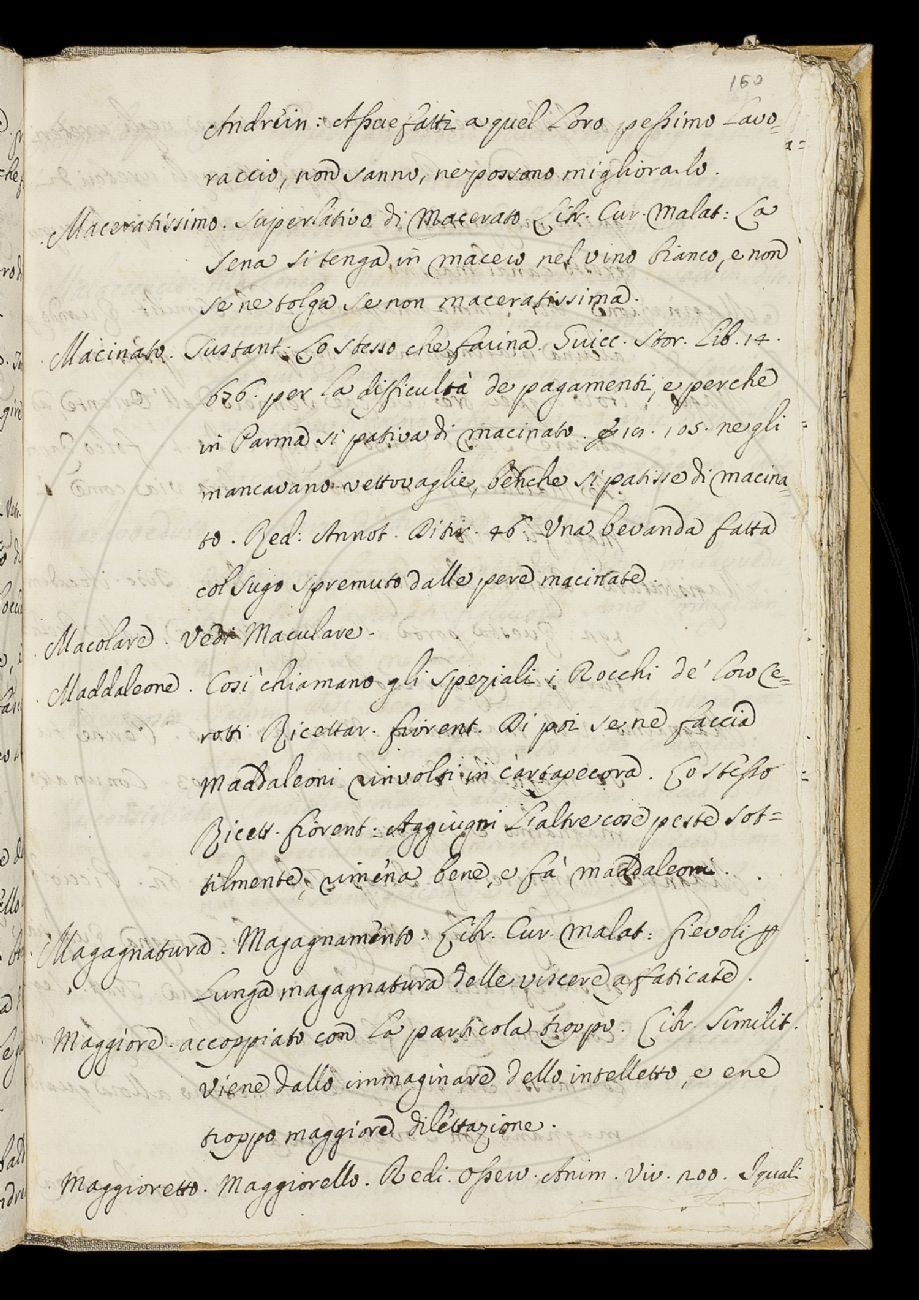 160
Andrein: Assuefatti a quel loro pessimo lavo-
raccio, non sanno, ne possono migliorarlo.
Maceratissimo. Superlativo di Macerato. Libr. Cur. Malat: La
sena si tenga in macero nel vino bianco, e non
se ne tolga se non maceratissima.
Macinato. Sustant. Lo stesso che farina. Guicc. Stor. Lib. 14.
676. per la difficultà de pagamenti, e perche
in Parma si pativa di macinato. 105. ne gli
mancavano vettovaglie, benche si patisse di macina-
to. Red: Annot. Ditir. 46. Una bevanda fatta
col sugo spremuto dalle pere macinate.
Macolare. Vedi Maculare.
Maddaleone. Così chiamano gli speziali i Rocchi de' loro Ce-
rotti Ricettar. fiorent. Di poi se ne faccia
Maddaleoni rinvolti in cartapecora. Lo stesso
Ricett. fiorent: Aggiugni l'altre cose peste sot=
tilmente, rimena bene, e fà maddaleoni.
Magagnatura. Magagnamento. Libr. Cur. Malat: fievoli
Lunga magagnatura delle viscere affaticate.
Maggiore. accoppiato con la particola troppo. Libr. Similit.
viene dallo immaginare dello intelletto, e ene
troppo maggiore dilettazione.
Maggioretto. Maggiorello. Redi. Osserv. Anim. Viv. 200. I quali